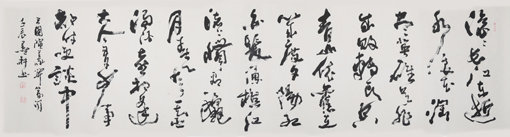 滚滚长江东逝
水浪花淘
尽英雄是非
成败转头空
青山依旧在
几度夕阳红
白发渔樵江
渚惯看秋
月春风一壶
浊酒喜相逢
古今多少事
都付笑谈中
三国演义开篇词